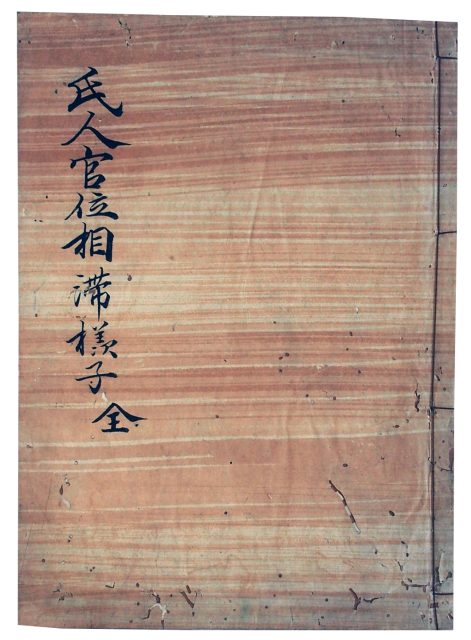 氏人官位相滞様子 全